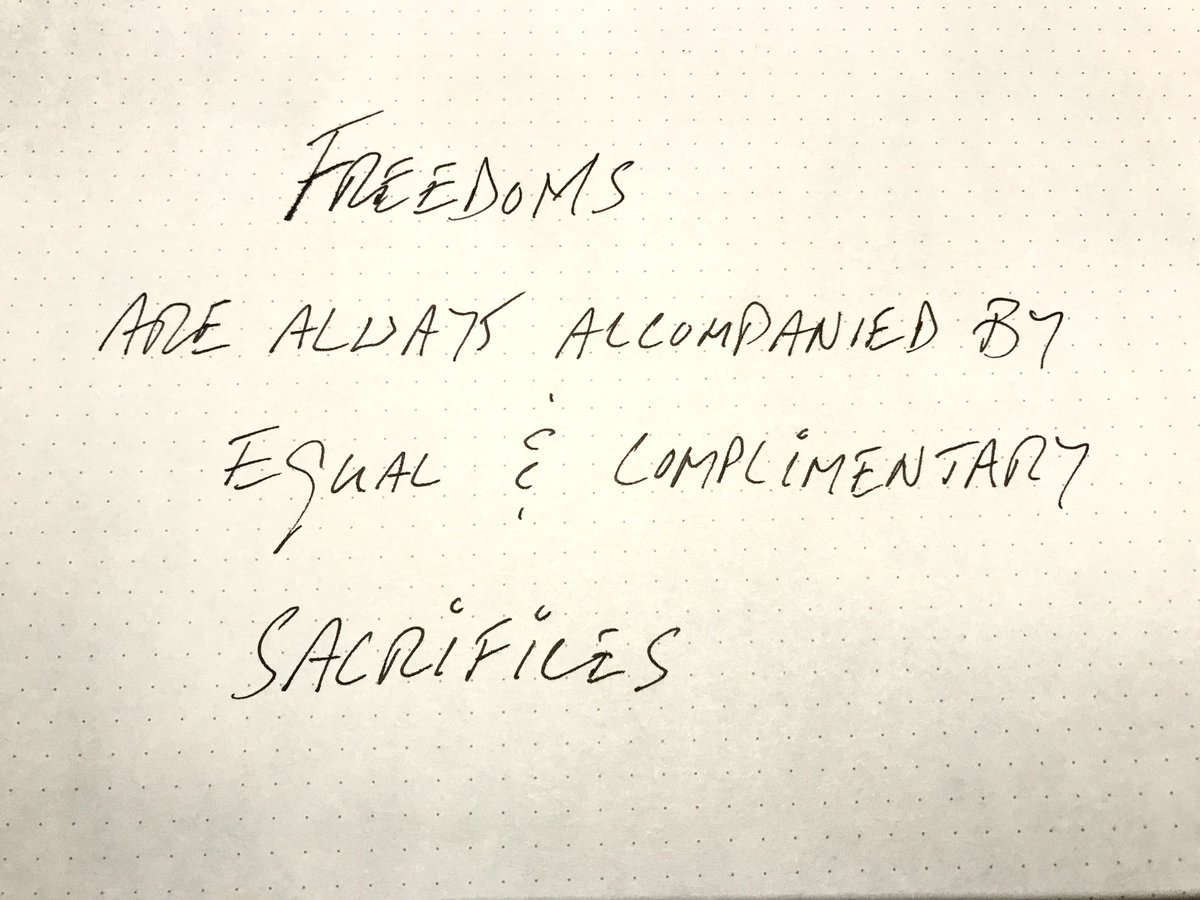 FREEDOMS
ARE ALWAYS ACCOMPANIED BY
EQUAL & COMPLIMENTARY
SACRIFICES